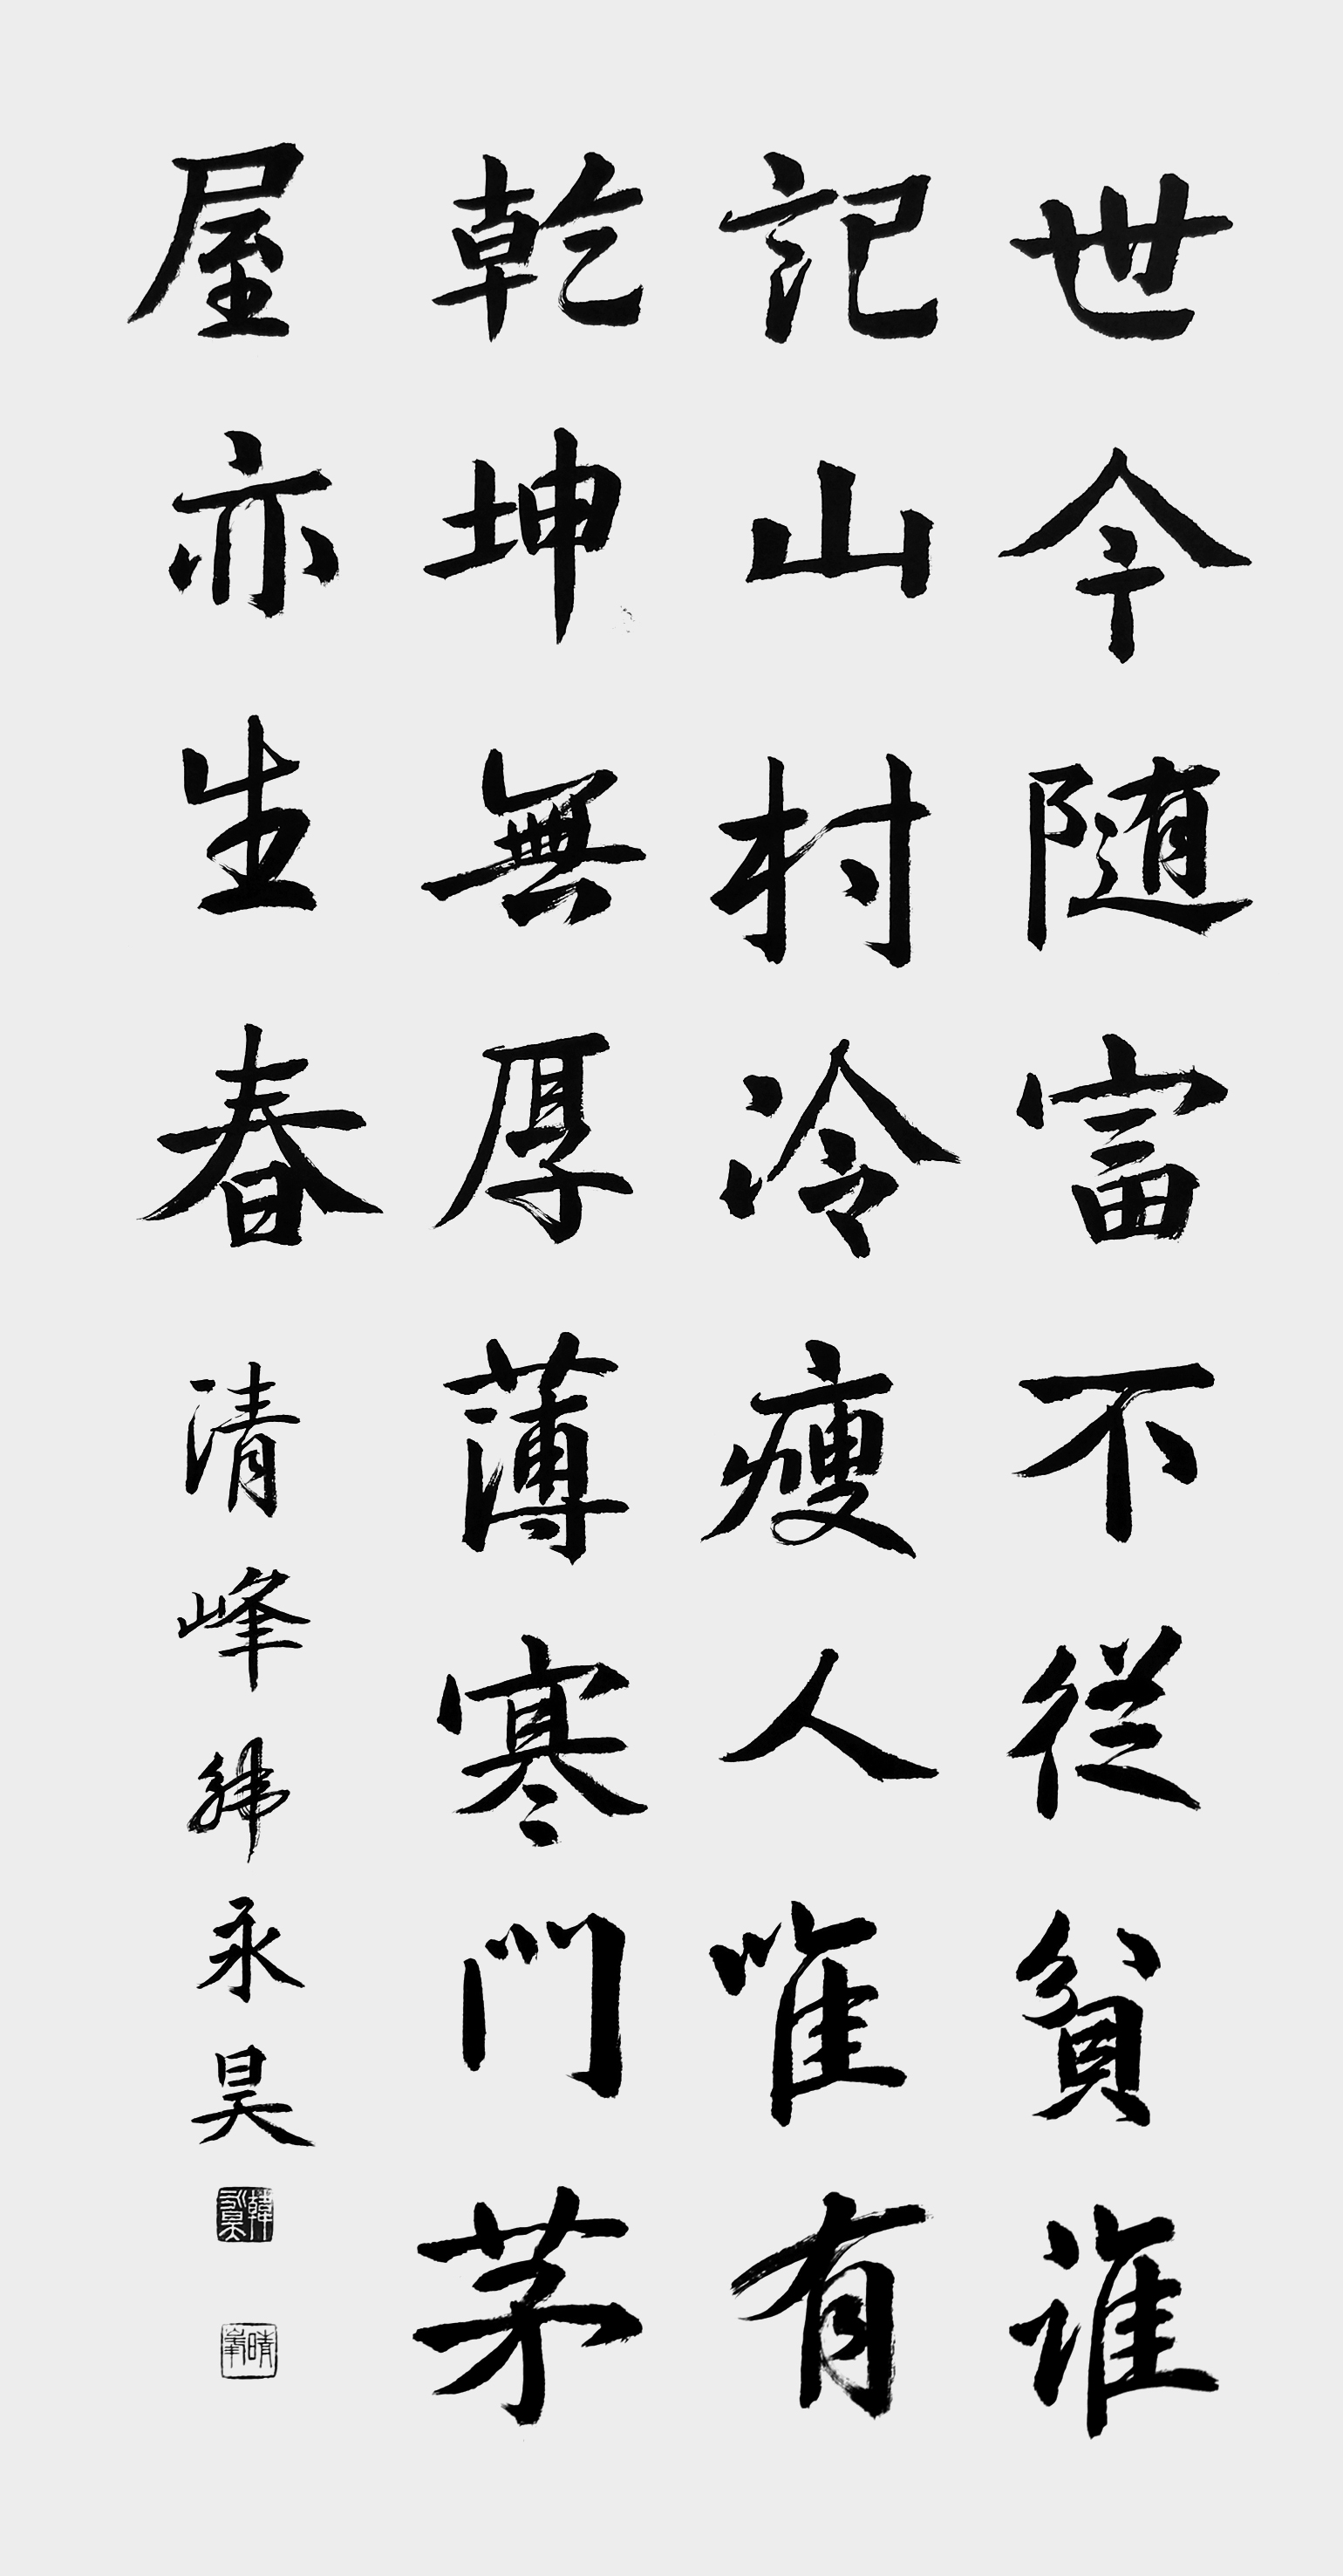 世今随富不従貧誰
記山村冷瘦人唯有
乾坤無厚薄寒門茅
屋亦生春清峰韓永昊
韓永昊
晴峯